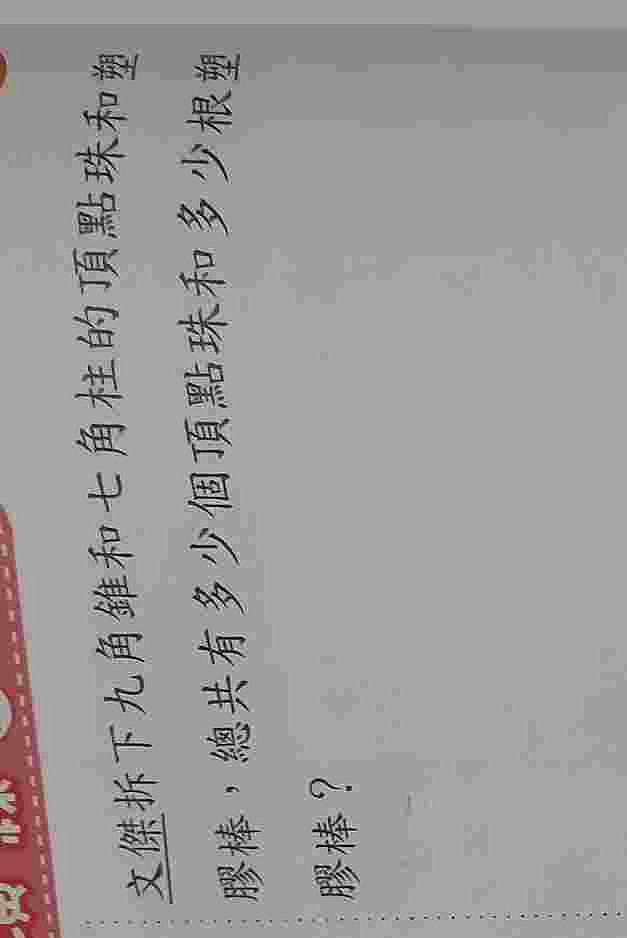 文傑拆下九角錐和七角柱的頂點珠和塑
膠棒，總共有多少個頂點珠和多少根塑
膠棒？